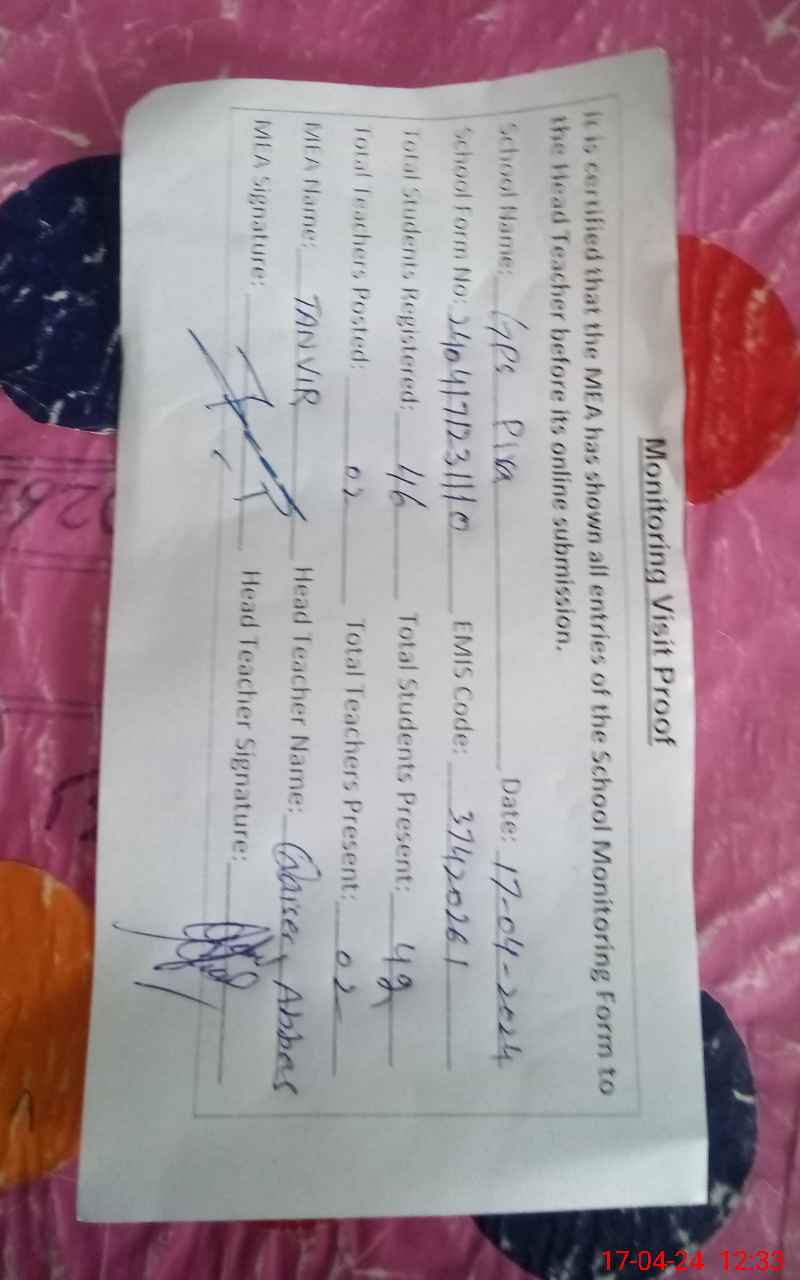 Monitoring Visit Proof
It is certified that the MEA has shown all entries of the School Monitoring Form to
the Head Teacher before its online submission.
School Name: GPS Pira Date: 17-04-2024
School Form No: 2404171231110 EMIS Code: 37420261
Total Students Registered: 46 Total Students Present: 42
Total Teachers Posted: 02 Total Teachers Present: 02
MEA Name: TANVIR Head Teacher Name: Qaiser Abbas
MEA Signature: Head Teacher Signature:
17-04-24 12:33